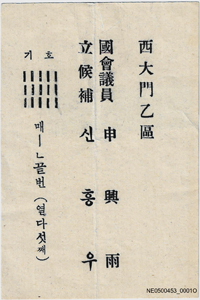 西大門乙區
國會議員 申興雨
立候補 신흥우
기호
매ㅡㄴ끝번(열다섯째)
NE0500453_0001O